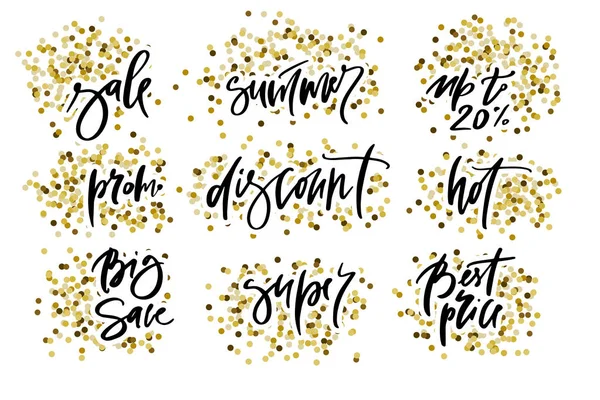 sale
summer
up to
20%
promo
discount
hot
Big
Sale
super
Best
price